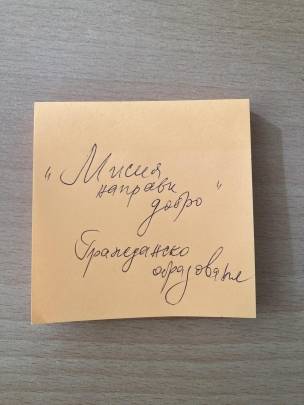 "Мисия
направи
добро"
Гражданско
образование